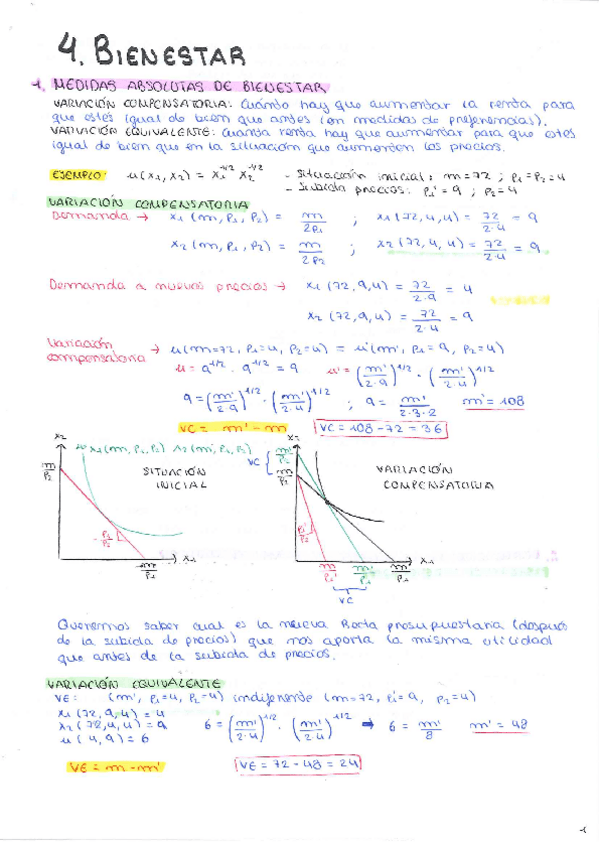 4. BIENESTAR
1. MEDIDAS ABSOLUTAS DE BIENESTAR
VARIACIÓN COMPENSATORIA: Cuánto hay que aumentar la renta para
que estés igual de bien que antes (en medidas de preferencias).
VARIACIÓN EQUIVALENTE: cuanta renta hay que aumentar para que estés
igual de bien que en la situación que aumenten los precios.
EJEMPLO: u(x1, x2) = x1^1/2 x2^1/2 - Situación inicial: m=72 ; p1=p2=4
- Subida precios: p1'=9 ; p2=4
VARIACIÓN COMPENSATORIA
Demanda → x1 (m, p1, p2) = m/2p1 ; x1 (72,4,4) = 72/2·4 = 9
x2 (m, p1, p2) = m/2p2 ; x2 (72,4,4) = 72/2·4 = 9
Demanda a nuevos precios → x1 (72,9,4) = 72/2·9 = 4
x2 (72,9,4) = 72/2·4 = 9
Variación compensatoria → u(m=72, p1=4, p2=4) = u(m', p1=9, p2=4)
u = 9^1/2 · 9^1/2 = 9 u' = (m'/2·9)^1/2 · (m'/2·4)^1/2
9 = (m'/2·9)^1/2 · (m'/2·4)^1/2 ; 9 = m'/2·3·2 m' = 108
VC = m' - m VC = 108 - 72 = 36
x2 x1(m, p1, p2) x2(m, p1, p2)
m/p2
SITUACIÓN
INICIAL
-p1/p2
m/p1 x1
x2
VC { m'/p2
m/p2
VARIACIÓN
COMPENSATORIA
p1'/p2
m/p1' m'/p1' m/p1 x1
VC
Queremos saber cual es la nueva Recta presupuestaria (después
de la subida de precios) que nos aporta la misma utilidad
que antes de la subida de precios.
VARIACIÓN EQUIVALENTE
VE: (m', p1=4, p2=4) indiferente (m=72, p1'=9, p2=4)
x1 (72,9,4) = 4
x2 (72,4,4) = 9
u (4,9) = 6
6 = (m'/2·4)^1/2 · (m'/2·4)^1/2 ⇒ 6 = m'/8 m' = 48
VE = m - m' VE = 72 - 48 = 24